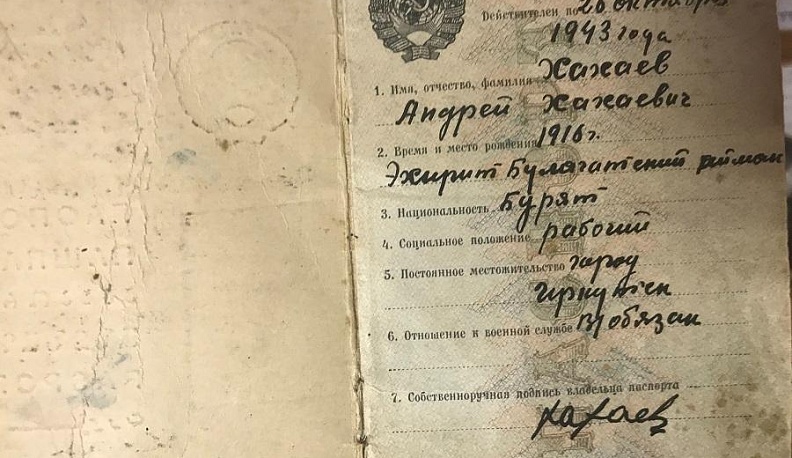 Действителен по 26 октября
1943 года
Хахаев
1. Имя, отчество, фамилия
Андрей Хахаевич
1916 г.
2. Время и место рождения
Эхирит Булагатский аймак
3. Национальность Бурят
4. Социальное положение рабочий
5. Постоянное местожительство город
Иркутск
6. Отношение к военной службе В/обязан
7. Собственноручная подпись владельца паспорта
Хахаев